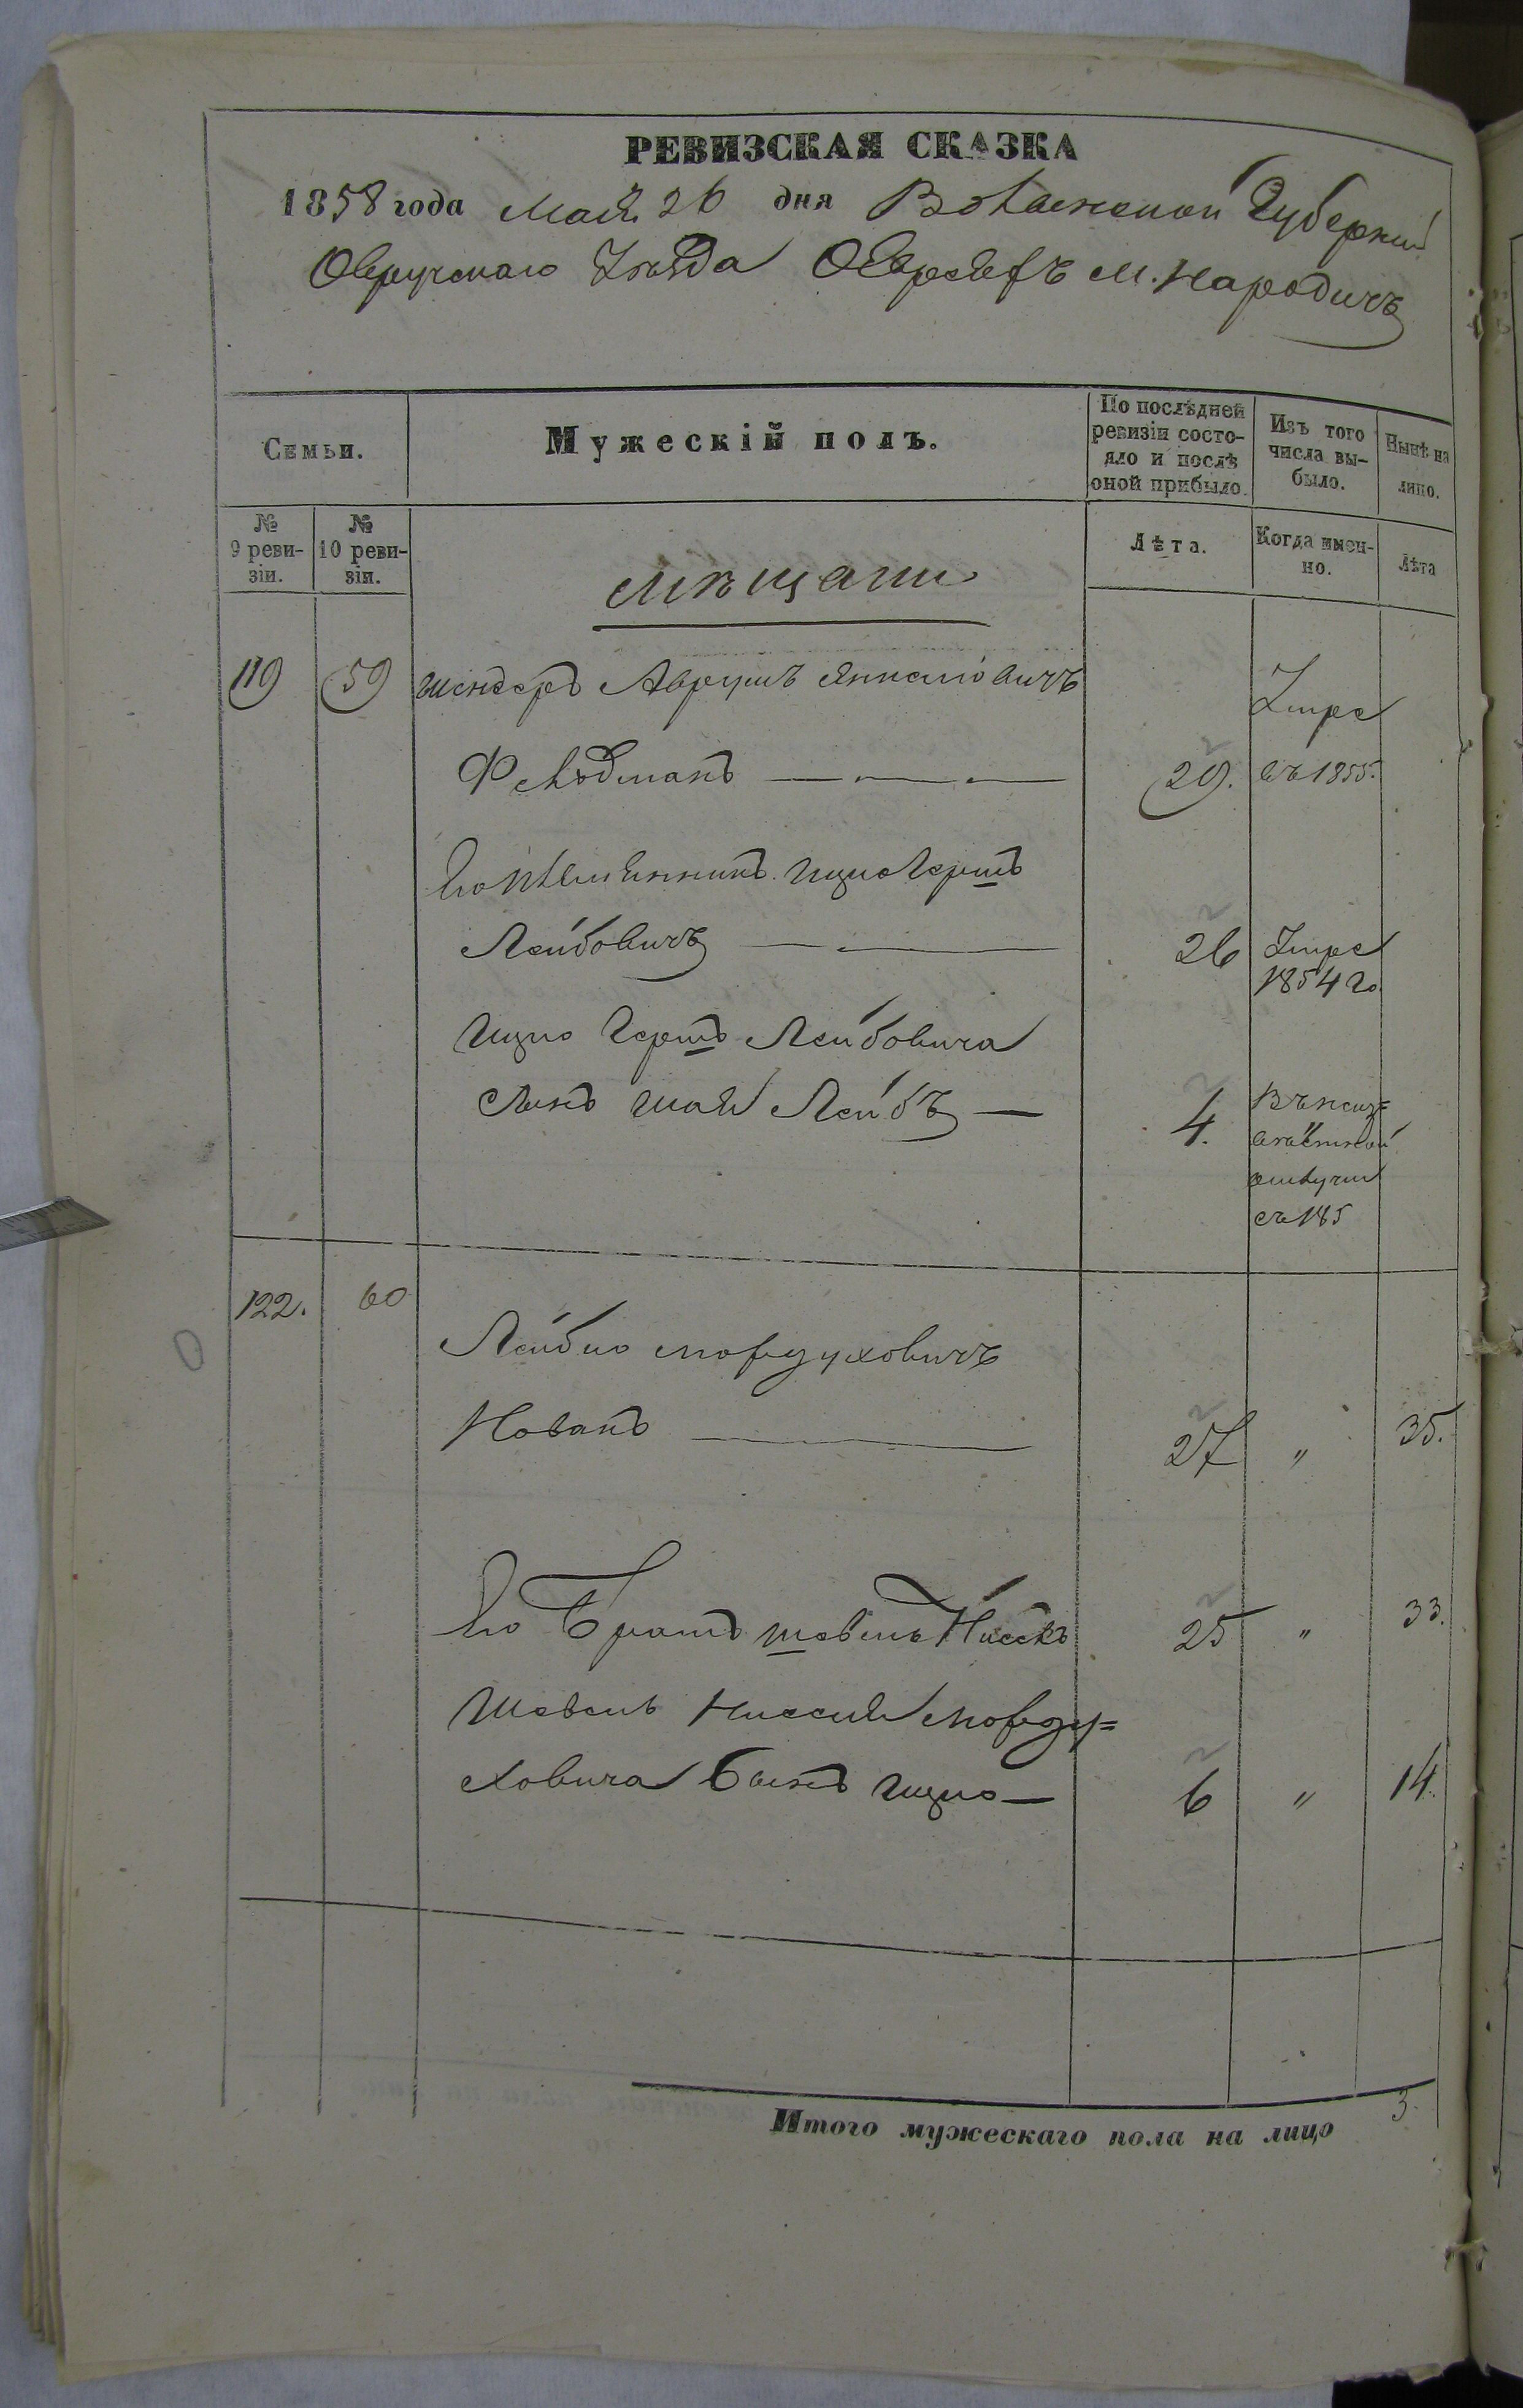 РЕВИЗСКАЯ СКАЗКА
1858 года Мая 26 дня Волынской Губернии
Овручскаго Уезда О Евреяхъ М. Народичъ
Семьи.
Мужескій полъ.
По послѣдней ревизіи состо-
яло и послѣ
оной прибыло.
Изъ того
числа вы-
было.
Нынѣ на
лицо.
№
9 реви-
зіи.
№
10 реви-
зіи.
Лѣта.
Когда имен-
но.
Лѣта
Мѣщани
119 59 Шендеръ Аврумъ Янкелiовичъ
Умре
Фельдманъ 29. въ 1855.
Его племянникъ Ицко Гершъ
Лейбовичъ 26 Умре
1854 го
Ицко Гершъ Лейбовича
сынъ Шая Лейбъ 4. Въ неиз=
вѣстной
отлучки
съ 185
122. 60
Лейбко Мордуховичъ
Новакъ 27 " 35.
Его Братъ 25 " 33.
Морду=
ховича Сынъ Ицко 6 " 14.
Итого мужескаго пола на лицо 3.